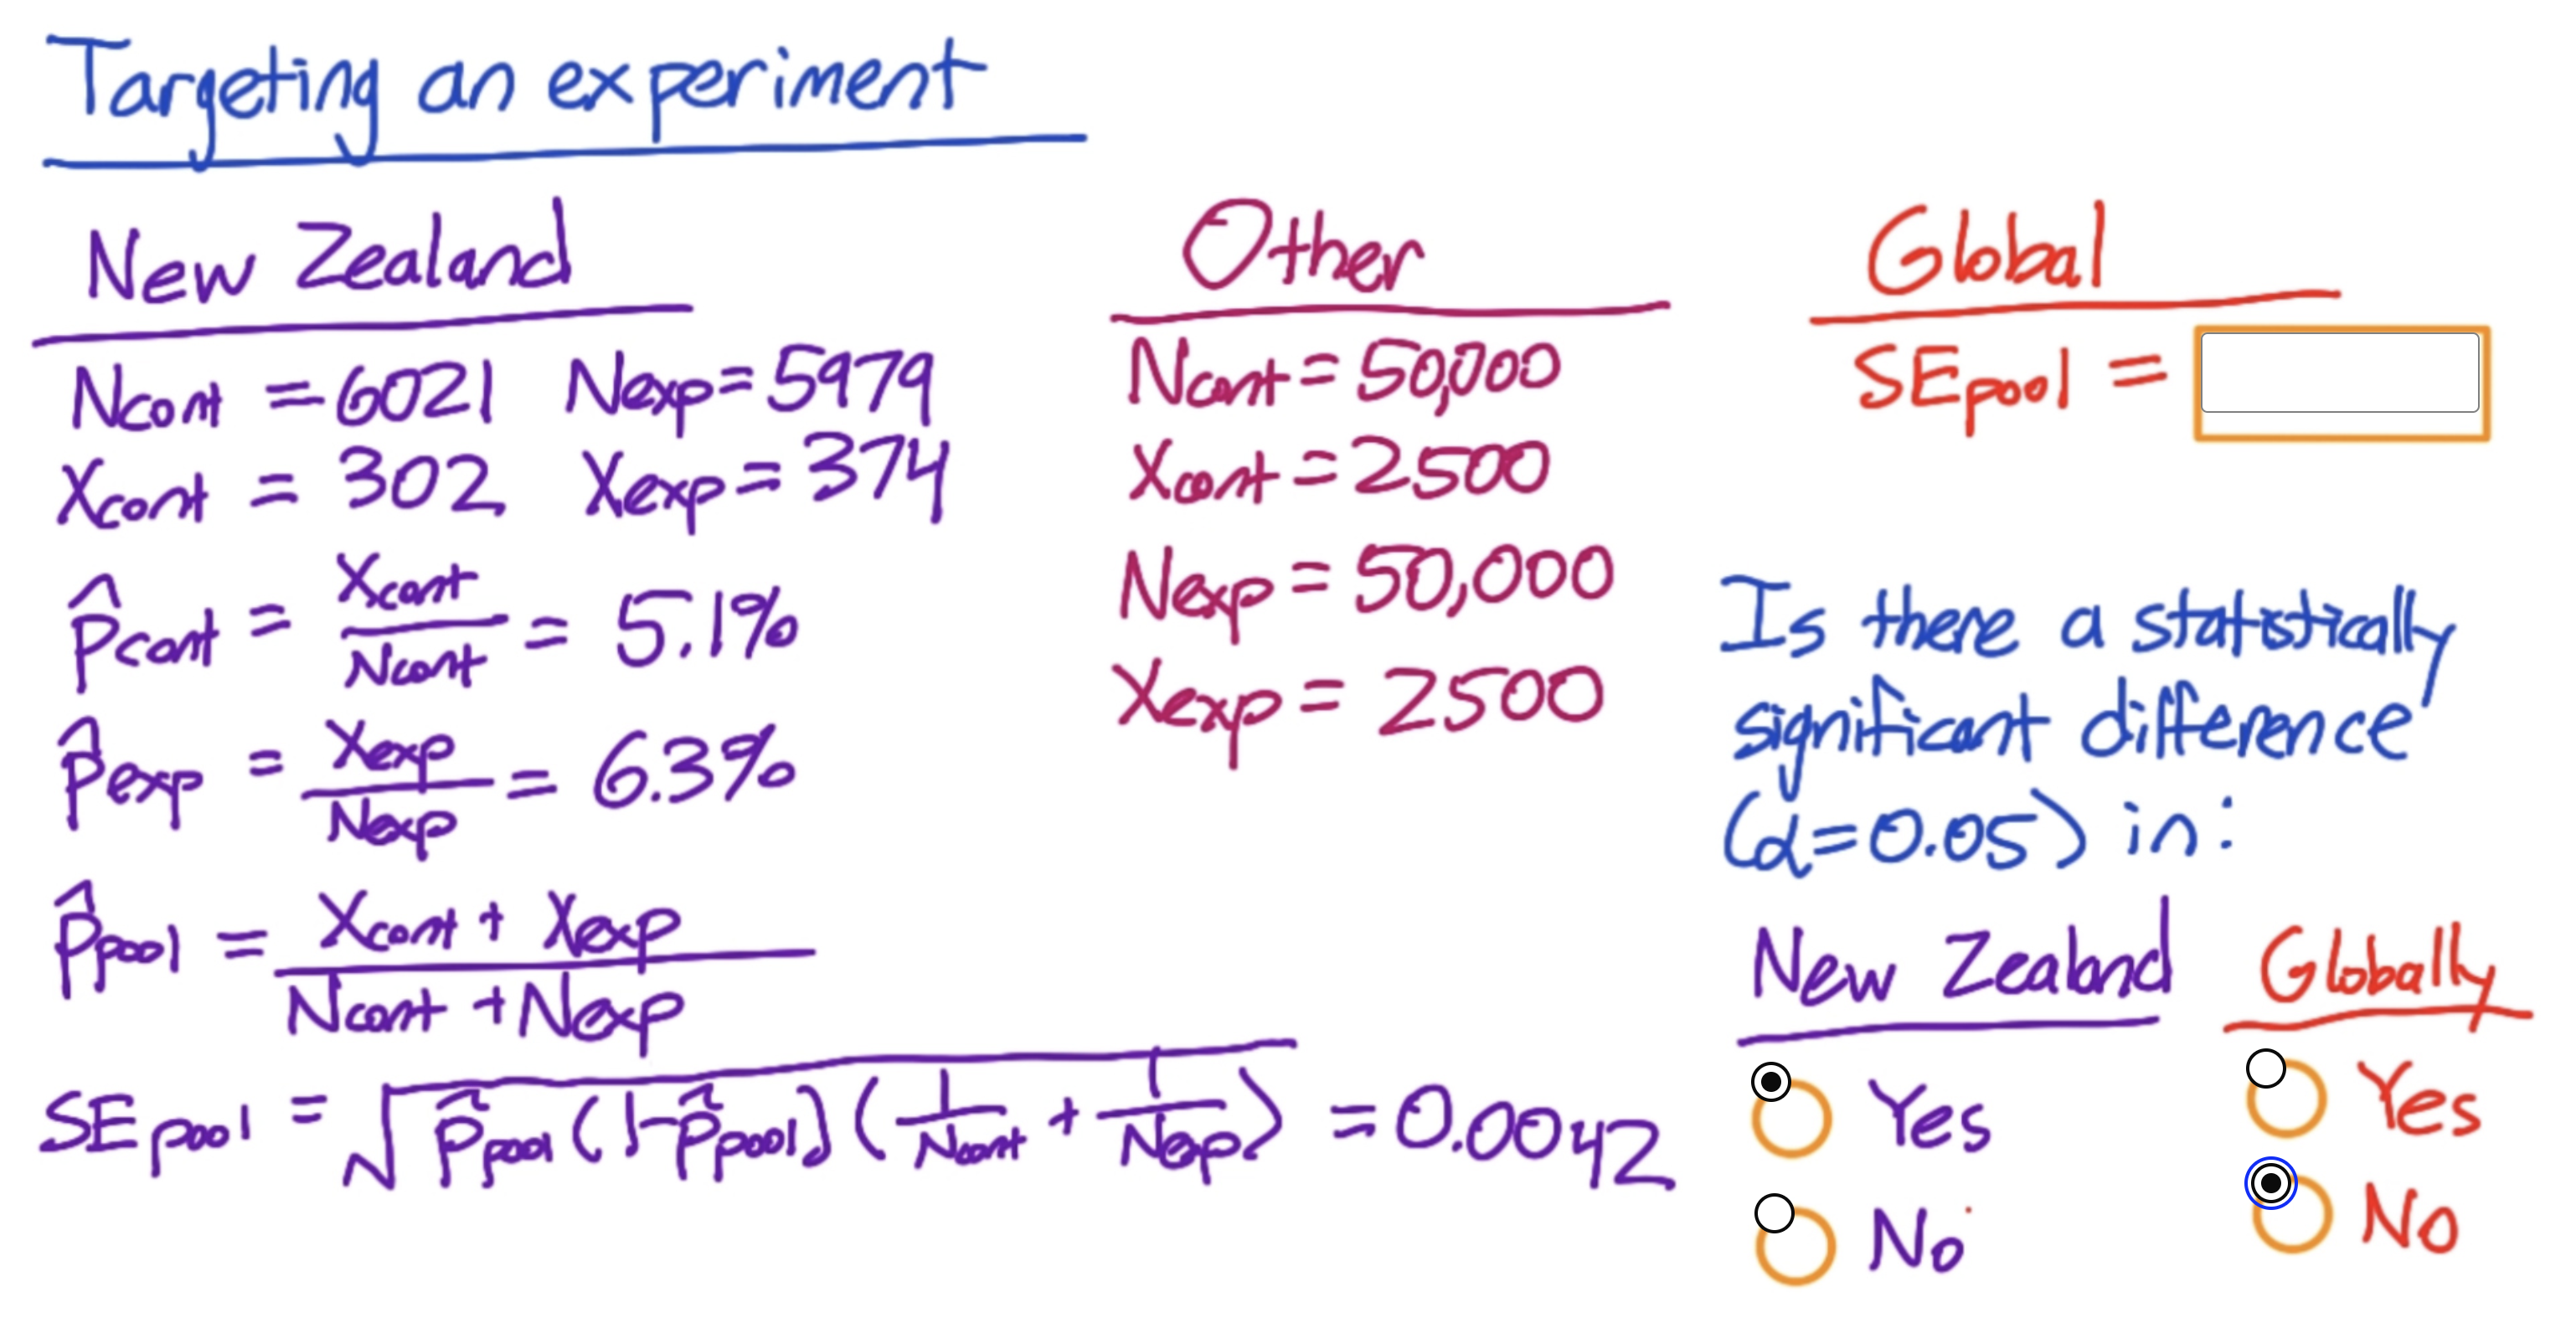 Targeting an experiment
New Zealand
Ncont = 6021 Nexp = 5979
Xcont = 302 Xexp = 374
p̂cont = Xcont / Ncont = 5.1%
p̂exp = Xexp / Nexp = 6.3%
p̂pool = Xcont + Xexp / Ncont + Nexp
SEpool = √ p̂pool (1-p̂pool) (1/Ncont + 1/Nexp) = 0.0042
Other
Ncont = 50,000
Xcont = 2500
Nexp = 50,000
Xexp = 2500
Global
SEpool =
Is there a statistically
significant difference
(α=0.05) in:
New Zealand
Yes
No
Globally
Yes
No